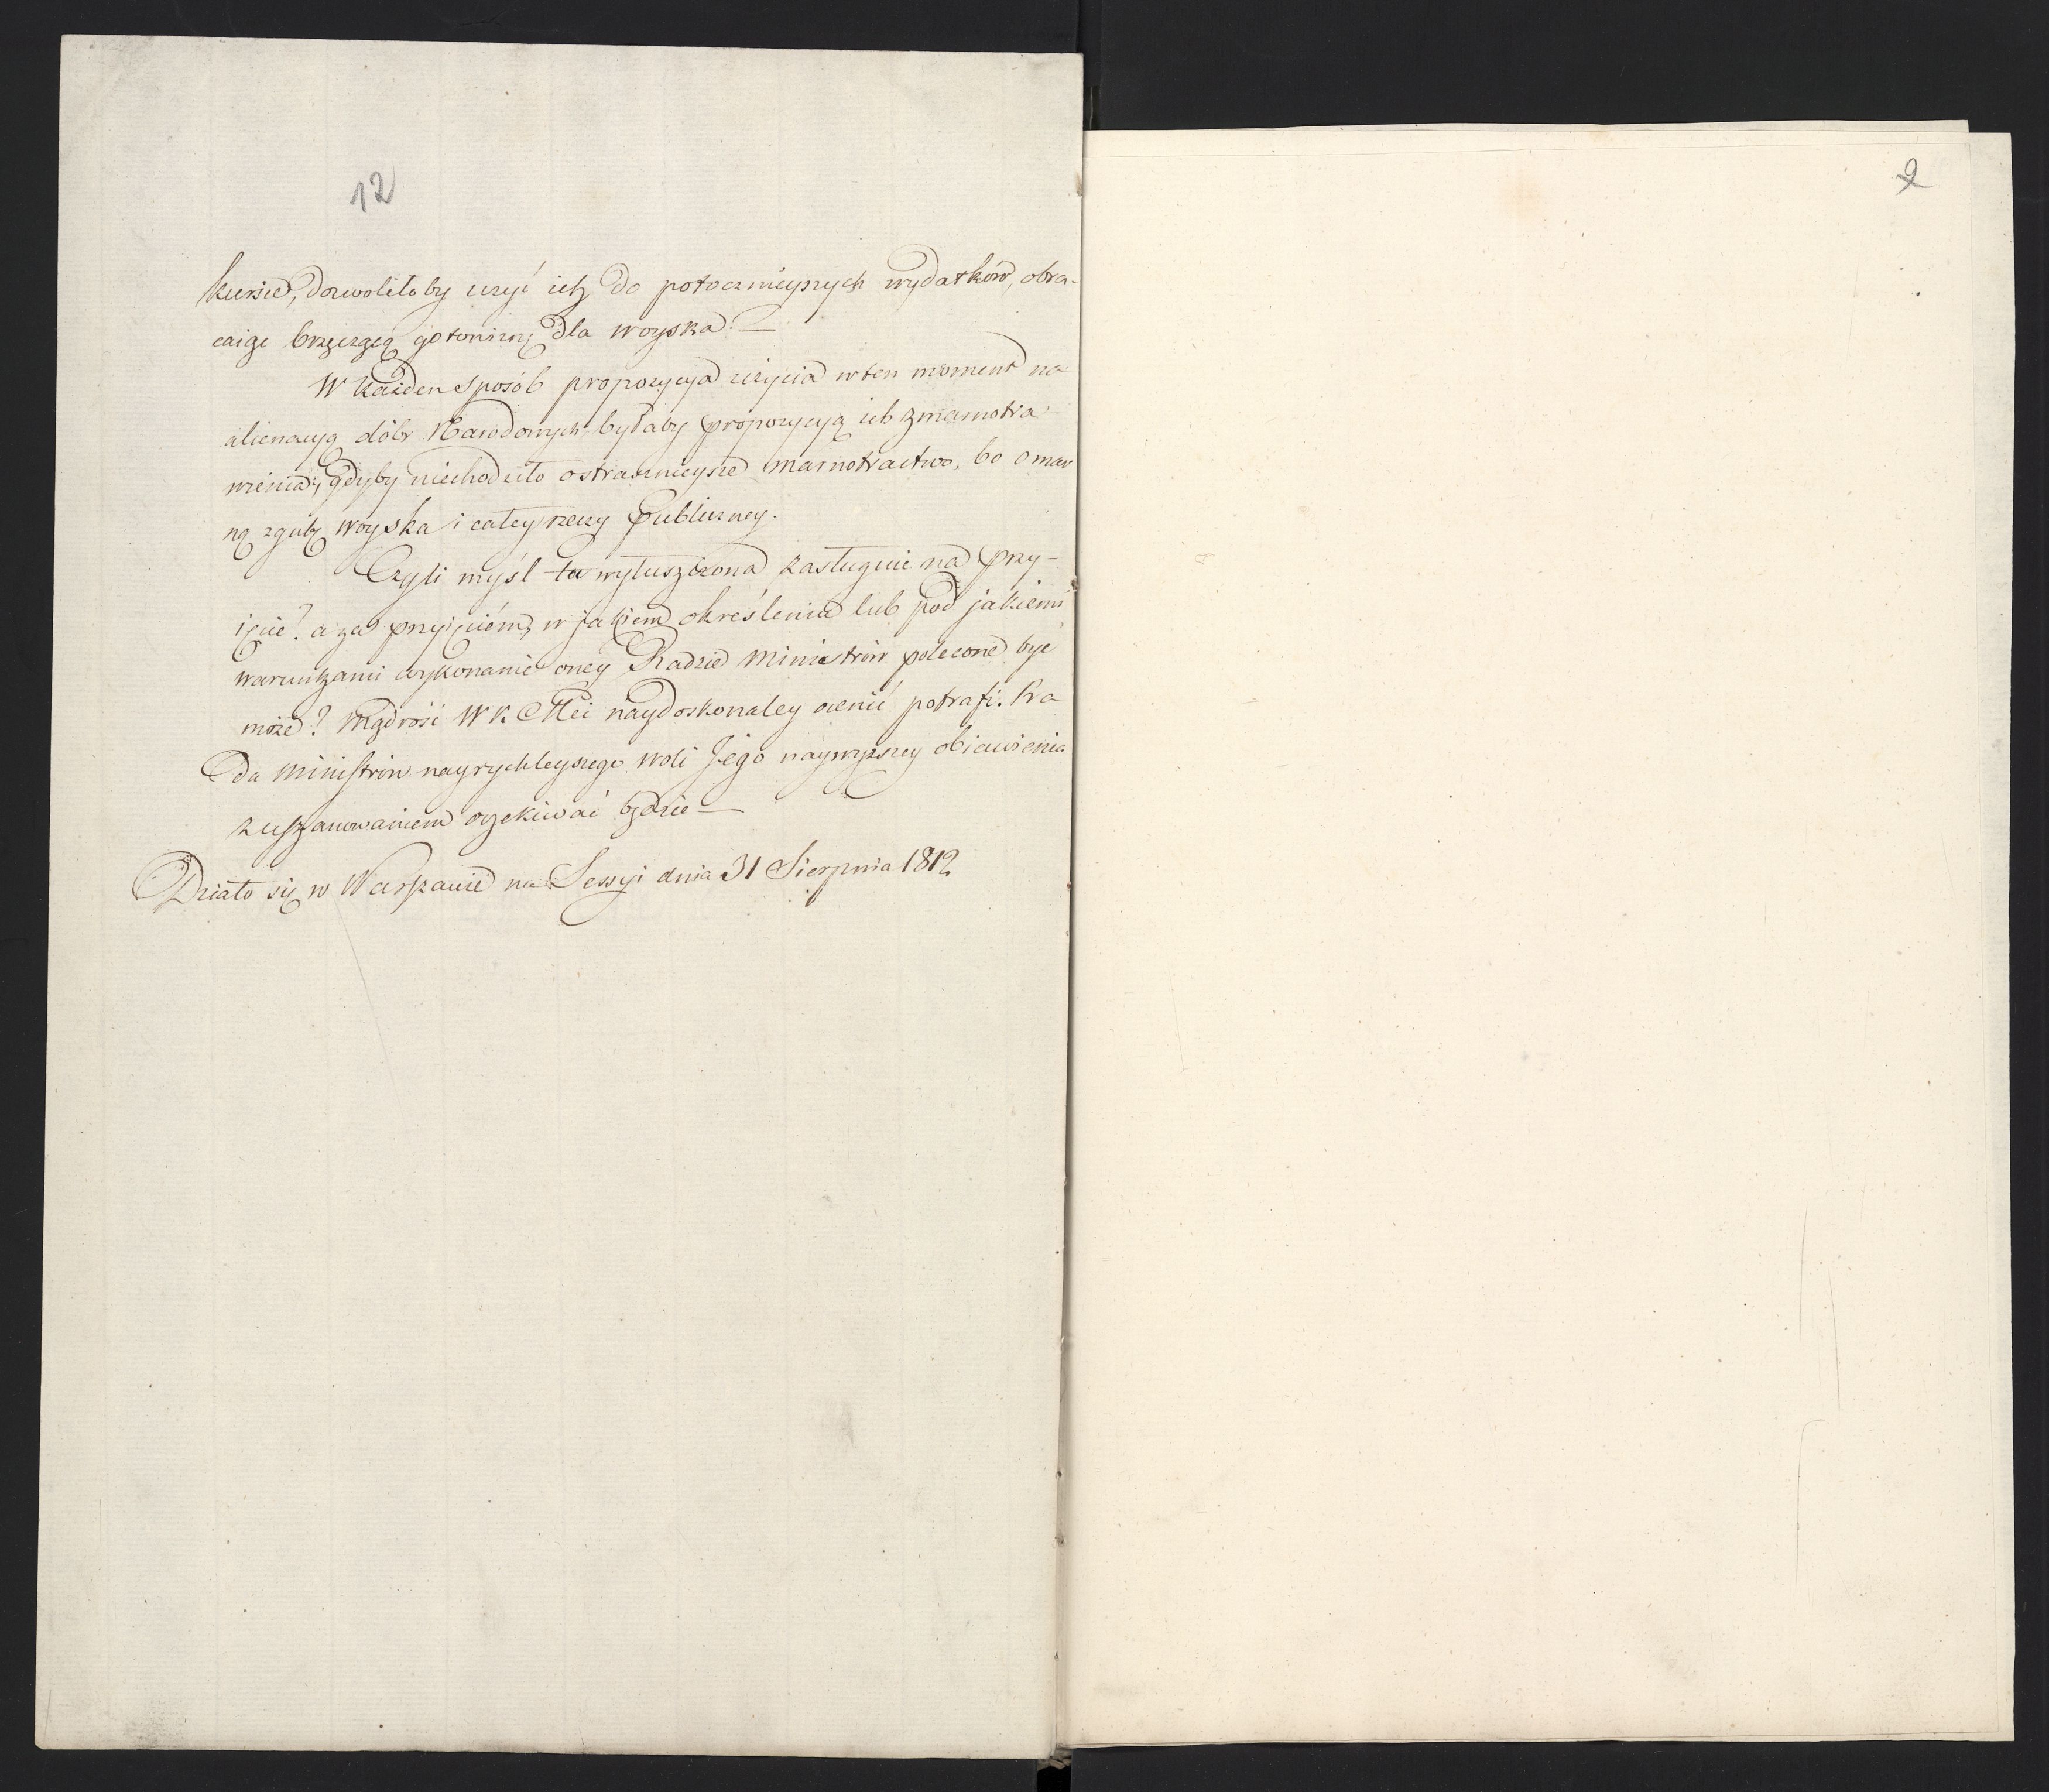 12
kursie, dozwoliłoby użyć ich do potocznieyszych wydatków, obra-
caiąc brzęczącą gotowiznę dla woyska. —
W każden sposób propozycya użycia w ten moment na
alienacyą dóbr Narodowych byłaby propozycyą ich zmarnotra-
wienia, gdyby niechodziło o strasznieysze marnotractwo, bo o mar
ną zgubę woyska i całey rzeczy Publiczney.
Czyli myśl ta wyłuszczona zasługuie na przy-
ięcie? a za przyięciem, w jakiem określeniu lub pod jakiemi
warunkami wykonanie oney Radzie Ministrów polecone być
może? Mądrość W K. Mci naydoskonaley ocenić potrafi. Ra
da Ministrów nayrychleyszego woli Jego naywyższey obiawienia
z uszanowaniem oczekiwać będzie —
Działo się w Warszawie na Sessyi dnia 31 Sierpnia 1812
2